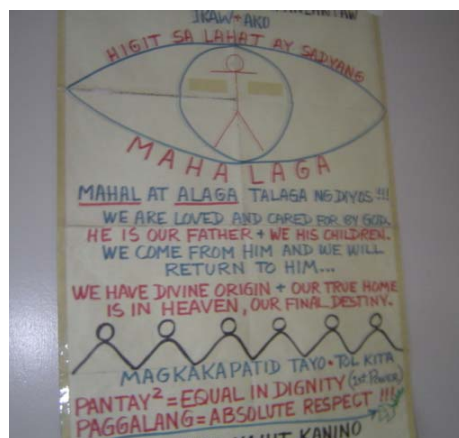 IKAW + AKO
HIGIT SA LAHAT AY SADYANG
MAHALAGA
MAHAL AT ALAGA TALAGA NG DIYOS!!!
WE ARE LOVED AND CARED FOR BY GOD.
HE IS OUR FATHER + WE HIS CHILDREN.
WE COME FROM HIM AND WE WILL
RETURN TO HIM...
WE HAVE DIVINE ORIGIN + OUR TRUE HOME
IS IN HEAVEN, OUR FINAL DESTINY.
MAGKAKAPATID TAYO • TOL KITA
PANTAY² = EQUAL IN DIGNITY (1st Power)
PAGGALANG = ABSOLUTE RESPECT!!!
KANINO